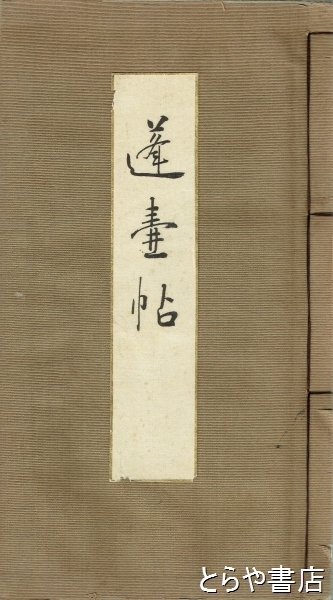 蓬壷帖
とらや書店